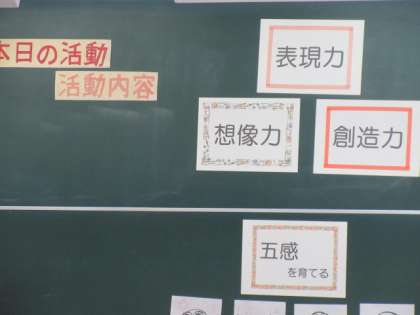 本日の活動
活動内容
表現力
想像力
創造力
五感
を育てる